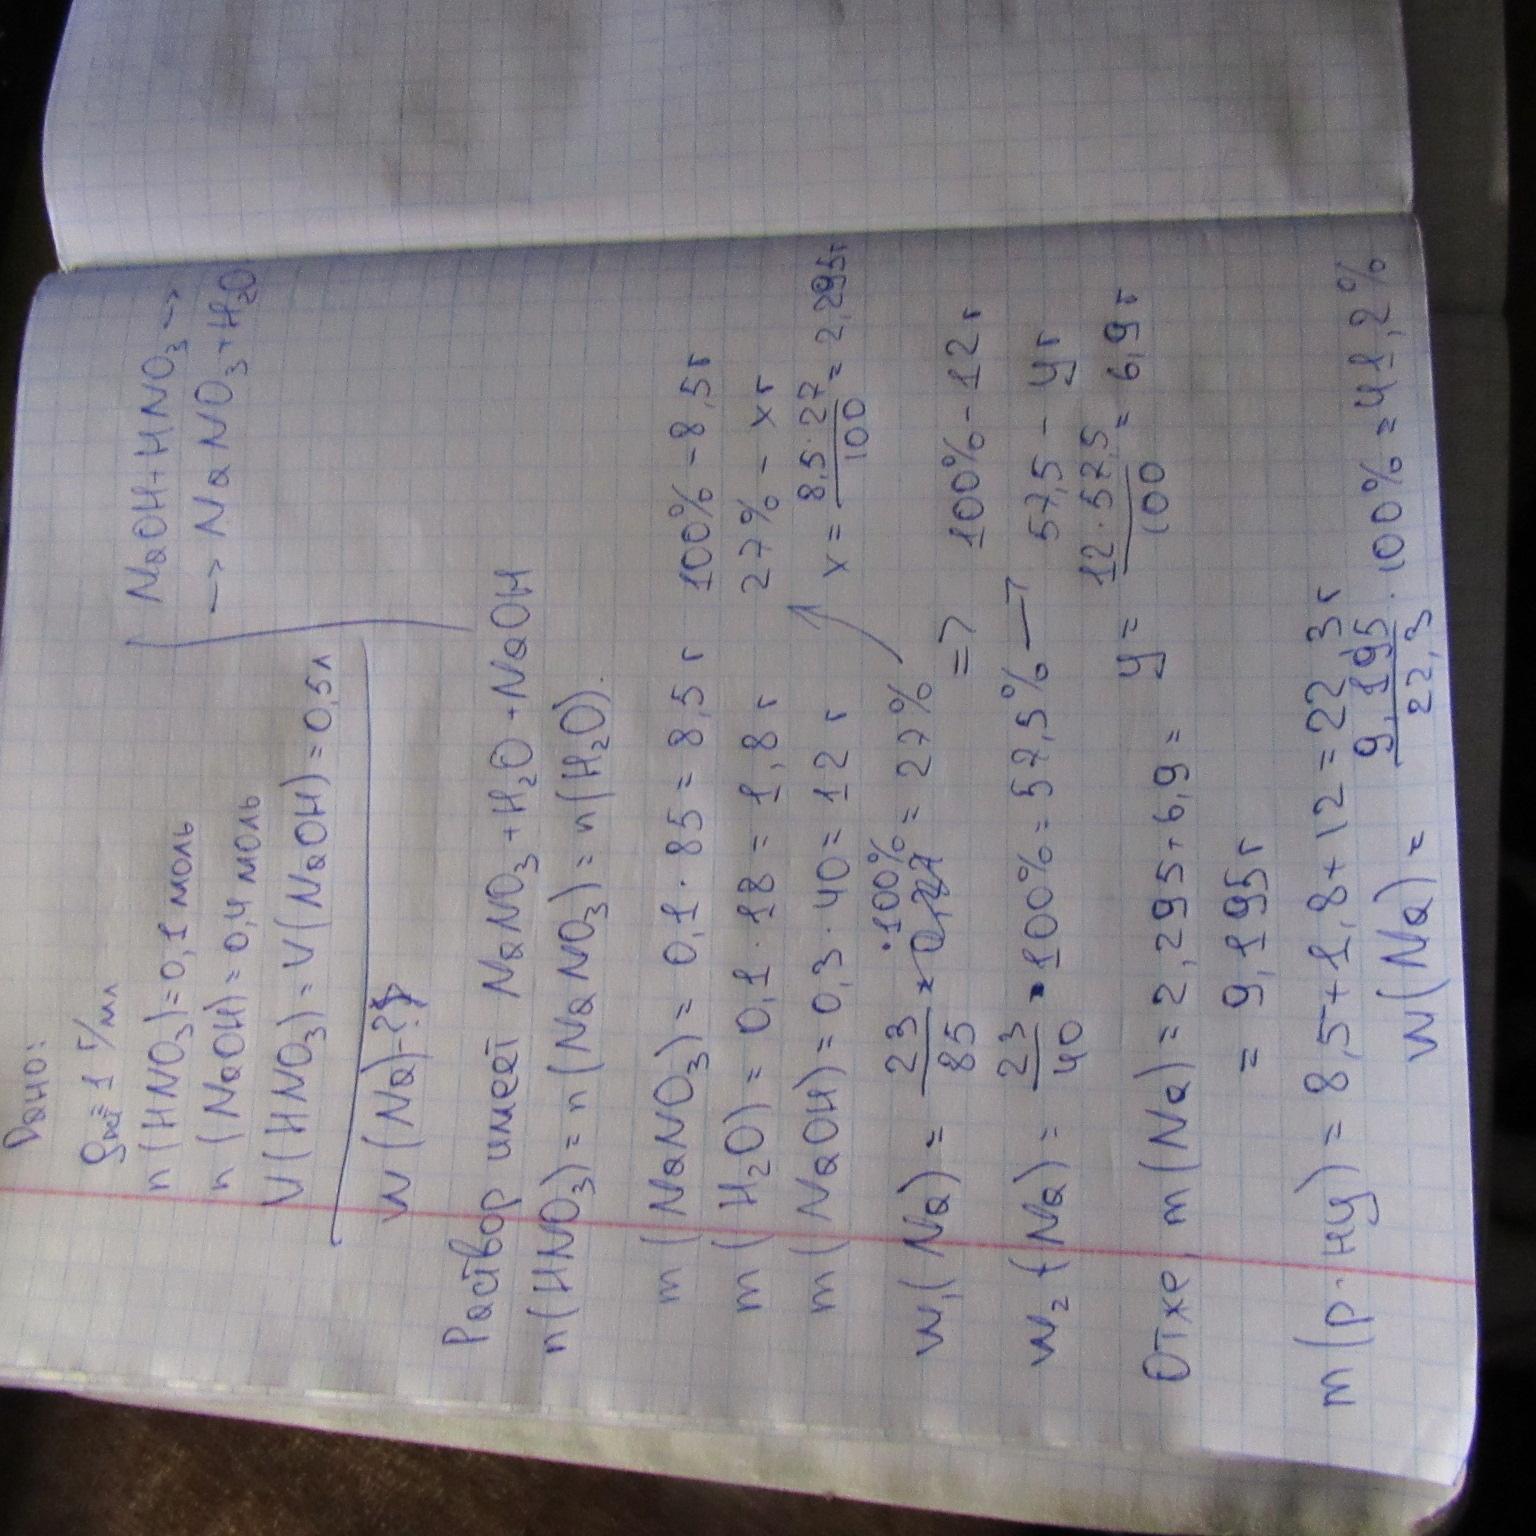 Дано:
ρ = 1 г/мл
n(HNO₃)=0,1 моль
n(NaOH)=0,4 моль
V(HNO₃)=V(NaOH)=0,5л
W(Na)-?
NaOH+HNO₃ →
→ NaNO₃+H₂O
Раствор имеет NaNO₃+H₂O+NaOH
n(HNO₃)=n(NaNO₃)=n(H₂O).
m(NaNO₃)=0,1·85=8,5 г
m(H₂O)=0,1·18=1,8 г
m(NaOH)=0,3·40=12 г
100%-8,5г
27% - xг
x = 8,5·27/100 = 2,295г
W₁(Na) = 23/85 ·100% = 27%
W₂(Na) = 23/40 ·100% = 57,5% =>
100%-12г
57,5 - yг
y = 12·57,5/100 = 6,9г
Отже, m(Na)=2,295+6,9=
= 9,195г
m(р-ну) = 8,5+1,8+12=22,3г
W(Na) = 9,195/22,3 ·100%=41,2%